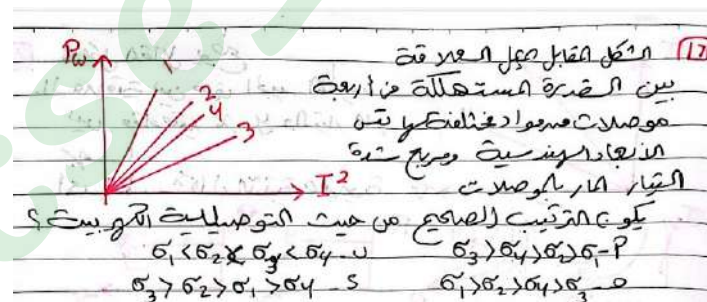 12 الشكل المقابل يمثل العلاقة
بين القدرة المستهلكة من أربعة
موصلات من مواد مختلفة لها نفس
الأبعاد الهندسية ومربع شدة
التيار المار بالموصلات
Pw
1
2
4
3
I²
يكون الترتيب الصحيح من حيث التوصيلية الكهربية؟
P- σ3>σ4>σ2>σ1
ب- σ1<σ2<σ3<σ4
ح- σ1>σ2>σ4>σ3
S- σ3>σ2>σ1>σ4